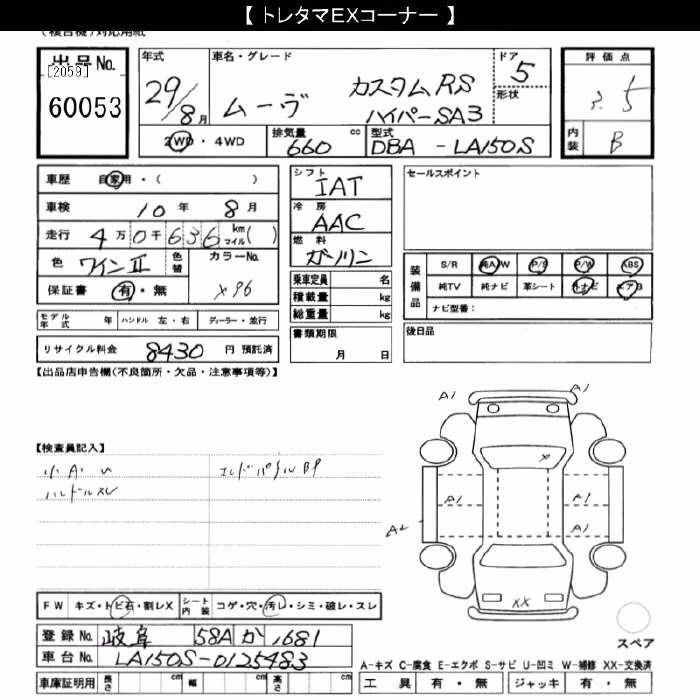 【 トレタマEXコーナー 】
(複合機)対応用紙
出品No.
[2059]
60053
年式 29/8月
車名・グレード ムーヴ カスタムRS ハイパーSA3
ドア 5
形状
評価点 3.5
内装 B
2WD・4WD
排気量 660 cc
型式 DBA - LA150S
車歴 自家用・( )
車検 10年 8月
走行 4万0千636 km マイル( )
色 ワインⅡ 色替
カラーNo. X96
保証書 有・無
モデル年式 年 ハンドル 左・右 ディーラー・並行
リサイクル料金 8430 円 預託済
シフト IAT
冷房 AAC
燃料 ガソリン
乗車定員 名
積載量 kg
総重量 kg
書類期限
月 日
セールスポイント
装備品
S/R 純A/W P/S P/W ABS
純TV 純ナビ 革シート 外ナビ エアB
ナビ型番：
後日品
【出品店申告欄(不良箇所・欠品・注意事項等)】
【検査員記入】
小A U
ハンドルスレ
エンドパネルBP
A1 A1
X
A1 A1
A2 A1
XX
FW キズ・トビ石・割レX
シート内装 コゲ・穴・汚レ・シミ・破レ・スレ
登録No. 岐阜 58A か 1681
車台No. LA150S-0125483
車庫証明用 長さ cm 幅 cm 高さ cm
スペア
A-キズ C-腐食 E-エクボ S-サビ U-凹ミ W-補修 XX-交換済
工具 有・無 ジャッキ 有・無